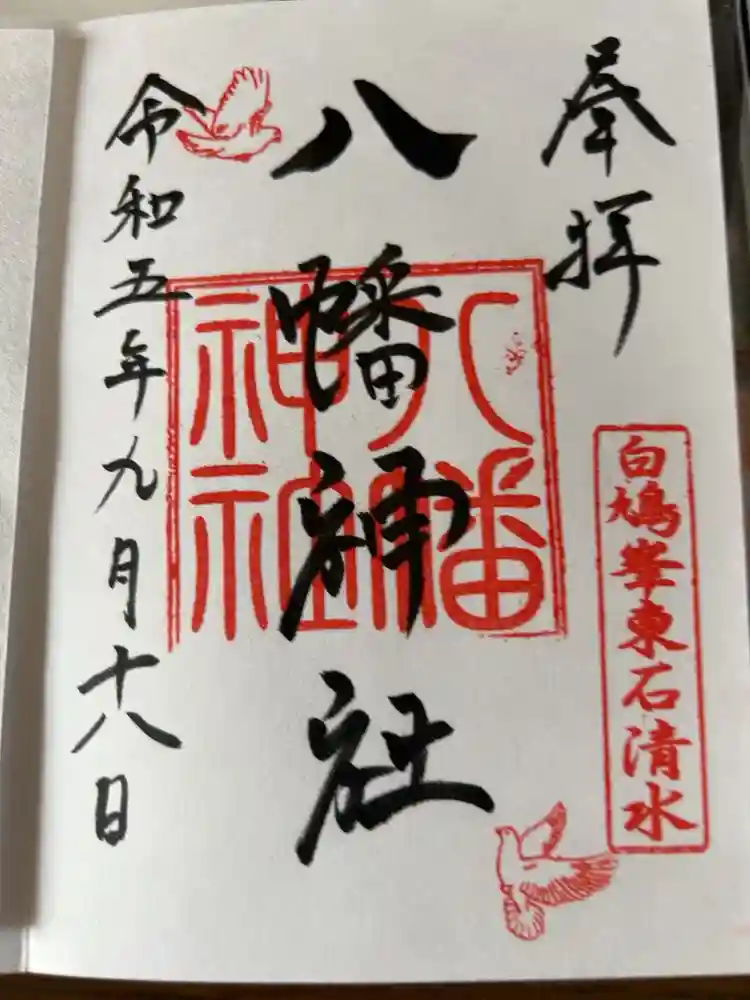 奉拝
白鳩峯東石清水
八幡神社
八幡
神社
令和五年九月十八日